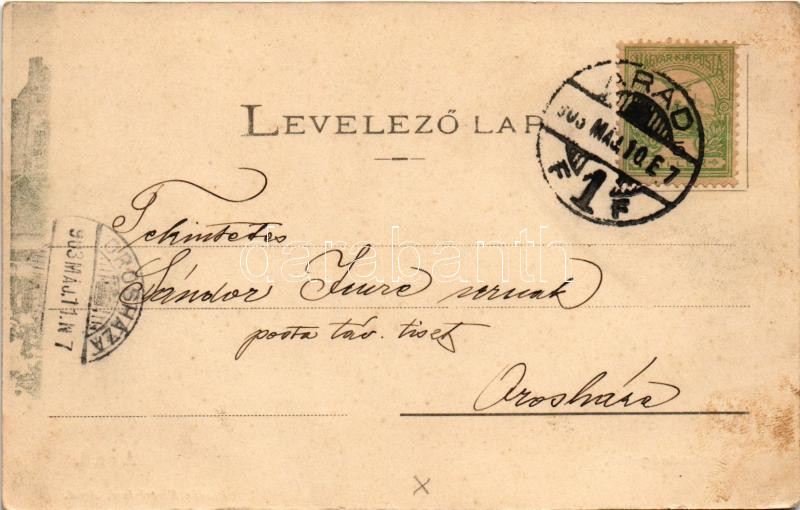 LEVELEZŐ LAP
MAGYAR KIR. POSTA
ARAD
903 MÁJ. 10. E 7
1
F F
Tekintetes
Sándor Imre urnak
posta táv. tiszt
Orosháza
OROSHÁZA
903 MAJ. 11. N 7
darabanth
X